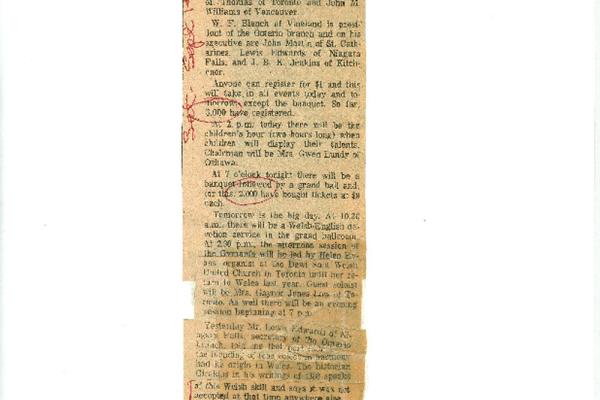 of. Thomas of Toronto and John M.
Williams of Vancouver.
W. F. Blanch of Vineland is presi-
dent of the Ontario branch and on his
executive are John Martin of St. Cath-
arines, Lewis Edwards of Niagara
Falls, and J. B. K. Jenkins of Kitch-
ener.
Anyone can register for $1 and this
will take in all events today and to-
morrow, except the banquet. So far,
3,000 have registered.
At 2 p.m. today there will be the
children's hour (two hours long) when
children will display their talents.
Chairman will be Mrs. Gwen Lundy of
Ottawa.
At 7 o'clock tonight there will be a
banquet followed by a grand ball and,
for this, 2,000 have bought tickets at
each.
Tomorrow is the big day. At 10.30
a.m. there will be a Welsh-English de-
votion service in the grand ballroom.
At 2.30 p.m., the afternoon session of
the Gymanfa will be led by Helen Ev-
ans, organist at the Dewi Sant Welsh
United Church in Toronto until her re-
turn to Wales last year. Guest soloist
will be Mrs. Gaynor Jones Low of To-
ronto. As well there will be an evening
session beginning at 7 p.m.
Yesterday Mr. Lewis Edwards of Ni-
agara Falls, secretary of the Ontario
branch, told me that
the blending of voices in harmony
had its origin in Wales. The historian
in his writings of speaks
of this Welsh skill and says it was not
accepted at that time anywhere else